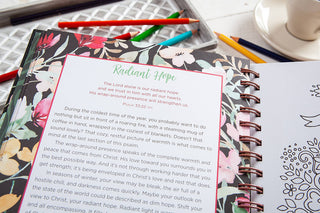 Radiant Hope
The Lord alone is our radiant hope
and we trust in him with all our hearts.
His wrap-around presence will strengthen us.
Psalm 33:20
During the coldest time of the year, you probably want to do
nothing but sit in front of a roaring fire, with a steaming mug of
coffee in hand, wrapped in the coziest of blankets. Doesn't that
sound lovely? That cozy, restful picture of warmth is what comes to
mind at the last section of this psalm.
The wrap-around presence of Jesus is the complete warmth and
peace that comes from Christ. His love toward you surrounds you in
the best possible way. And it's not through working harder that you
get strength; it's being enveloped in Christ's love and rest that does.
In seasons of winter, your view may be bleak, the air full of
hostile chill, and darkness comes early. Maybe your outlook on
the state of the world could be described as dim hope. Shift your
view to Christ, your radiant hope. Radiant light is
and all encompassing. It fills